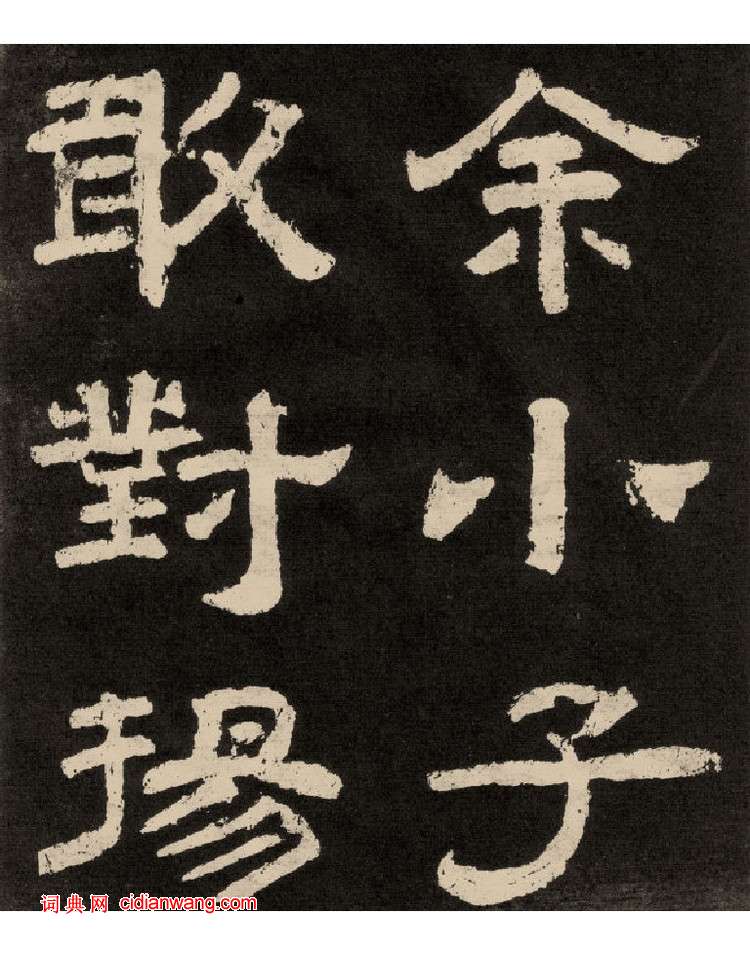 余小子
敢對揚
词典网 cidianwang.com